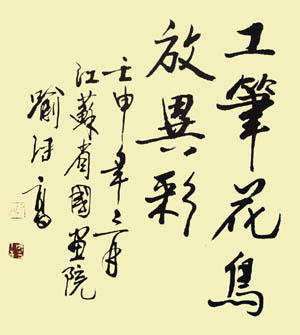 工筆花鳥
放異彩
壬申年三月
江蘇省國畫院
喻继高